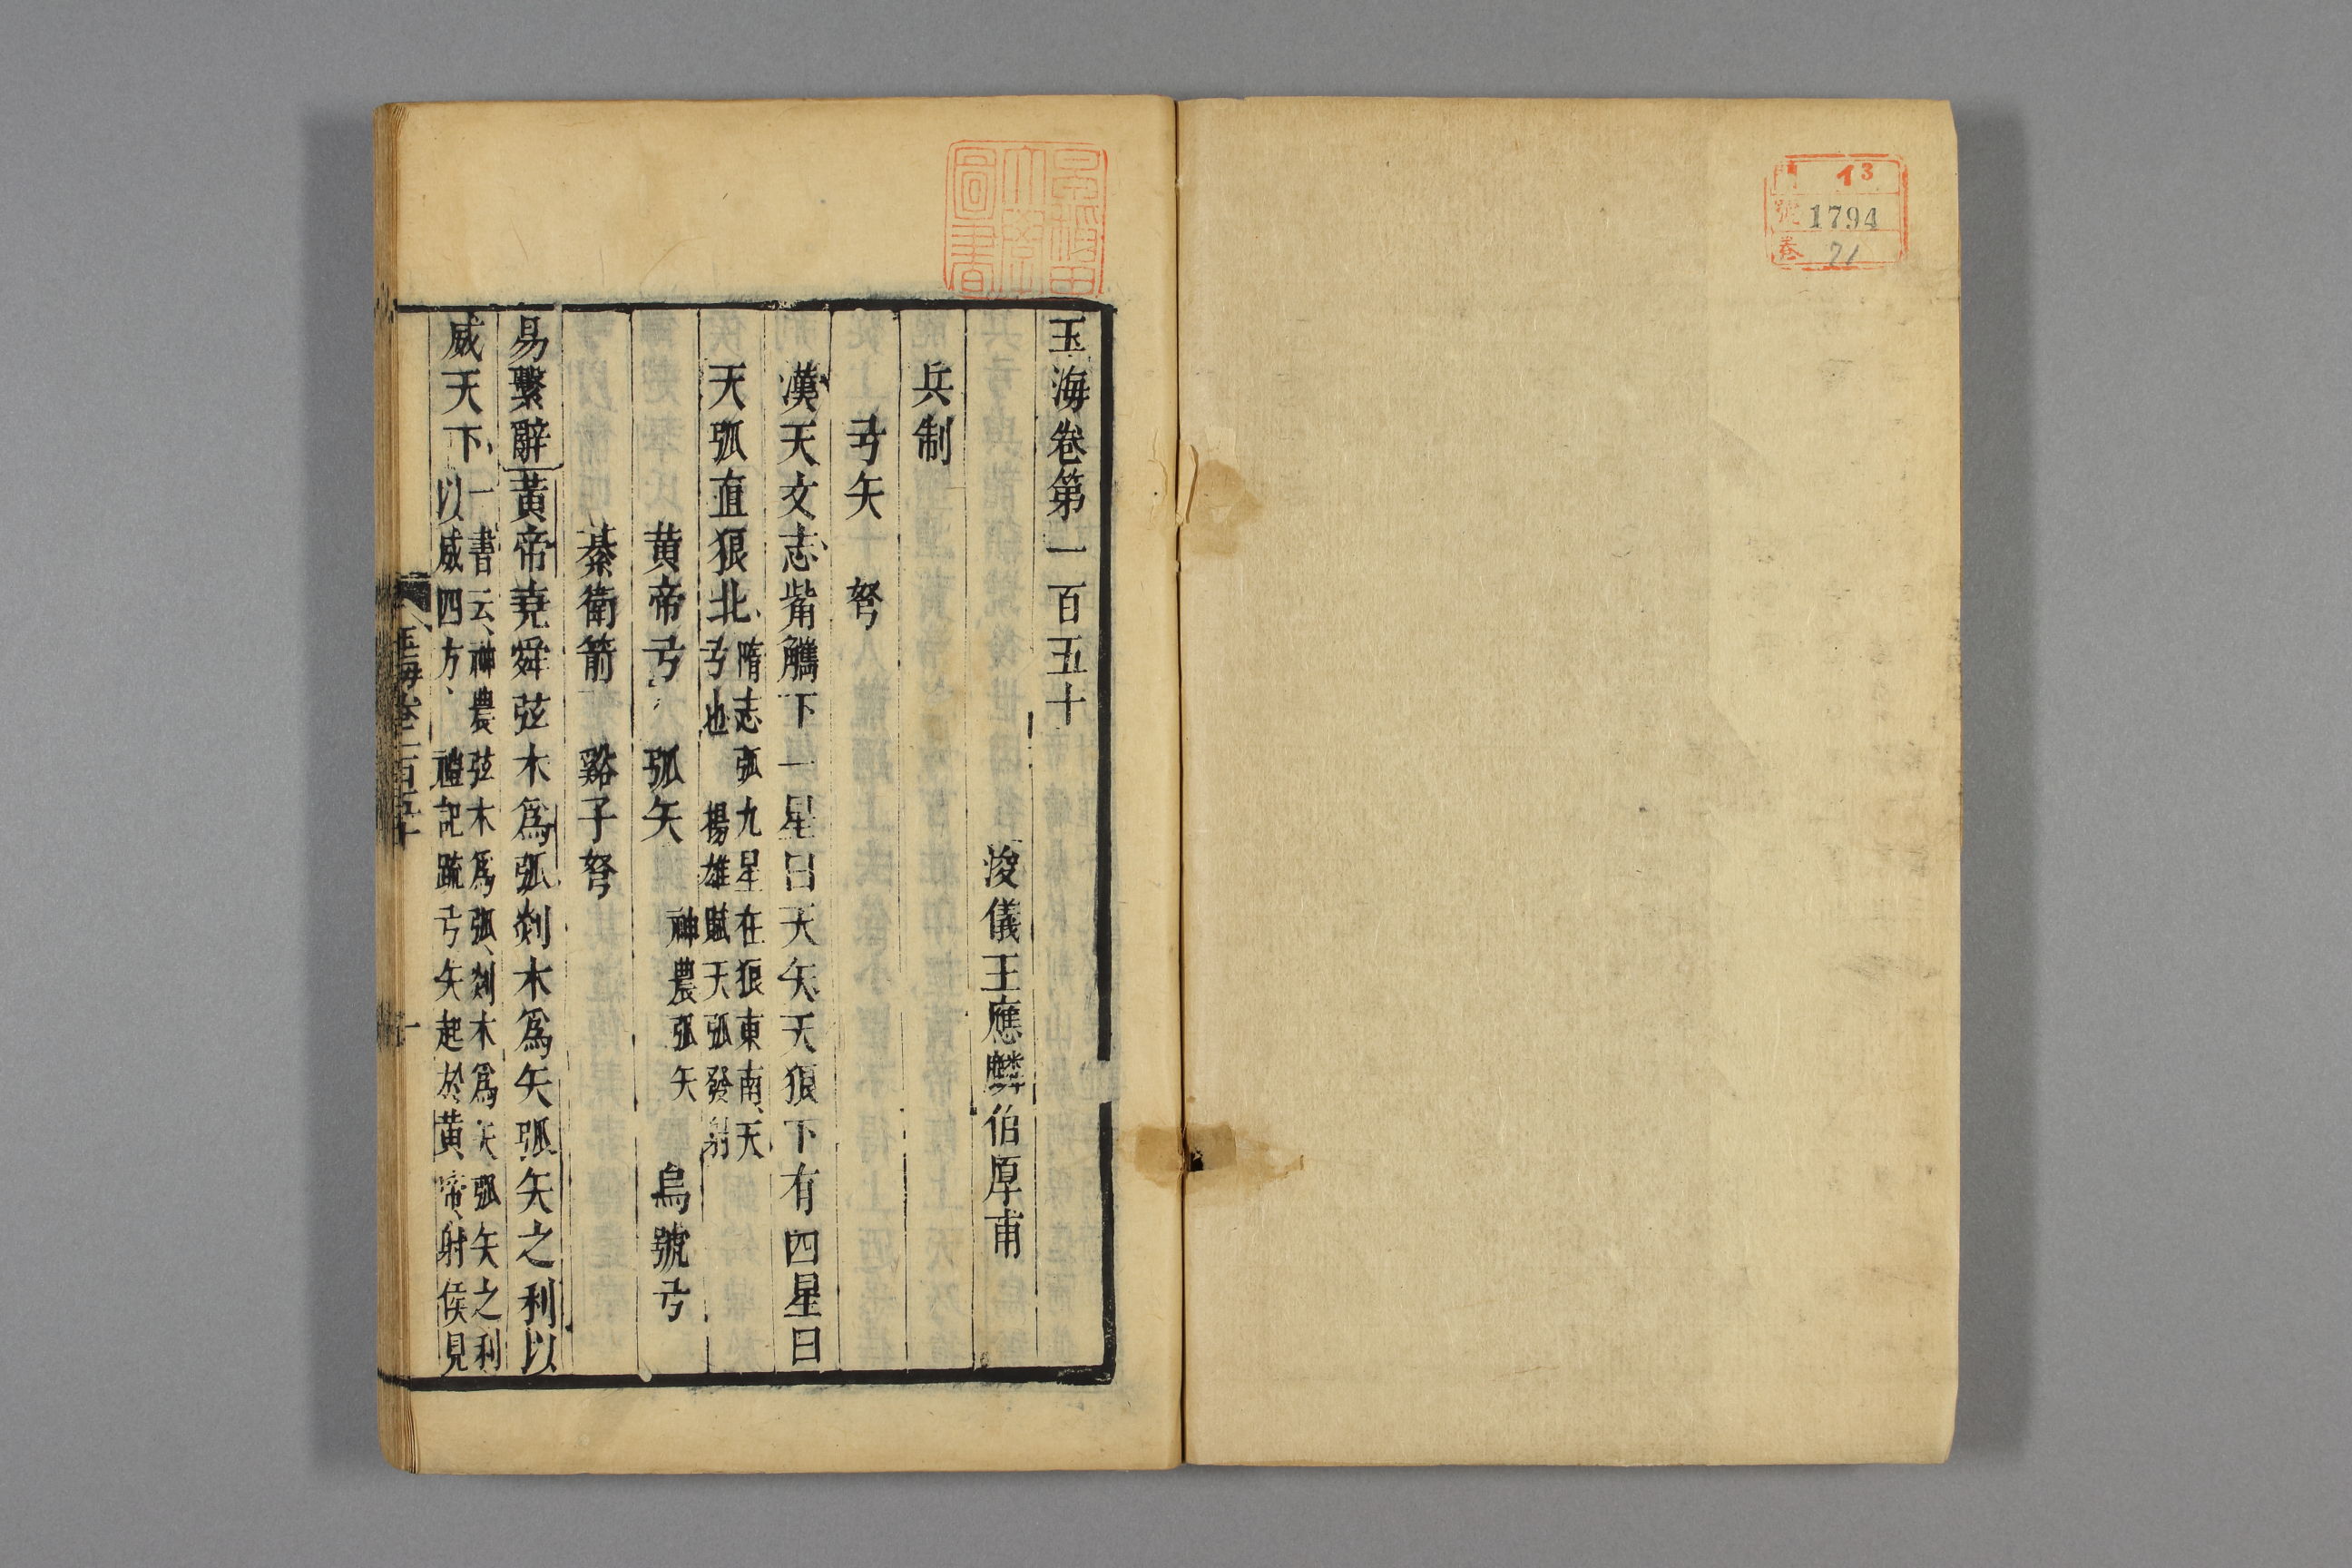 門 13
號 1794
卷 21
早稻田大學圖書
玉海卷第一百五十
浚儀王應麟伯厚甫
兵制
弓矢 弩
漢天文志觜觿下一星曰天矢天狼下有四星曰
天弧直狼北隋志弧九星在狼東南、天弓也 楊雄賦天弧發射
黄帝弓 弧矢神農弧矢 烏號弓
綦衛箭 谿子弩
易繫辭黃帝堯舜弦木爲弧剡木爲矢弧矢之利以
威天下、一書云、神農弦木爲弧、剡木爲矢、弧矢之利以威四方、 禮記疏弓矢起於黄帝、射侯見
玉海卷一百五十 一